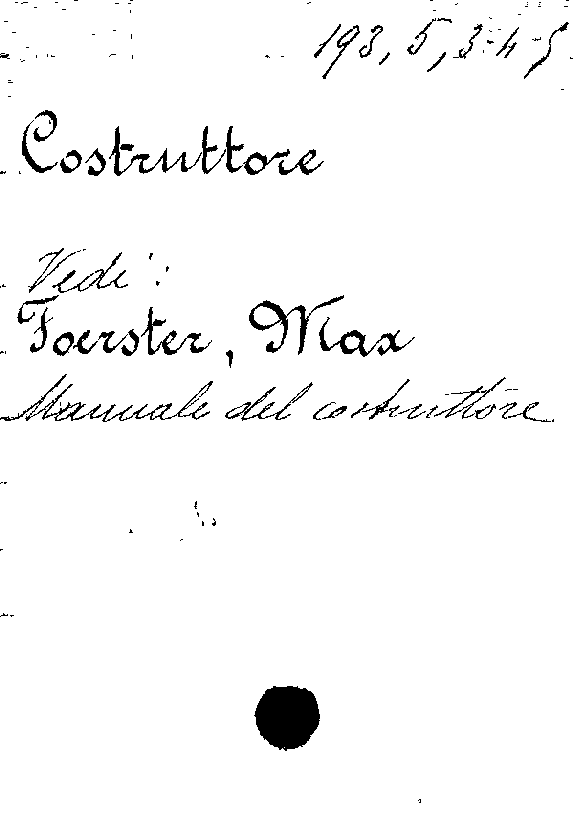 193, 5, 3-4-5
Costruttore
Vedi:
Foerster, Max
Manuale del costruttore